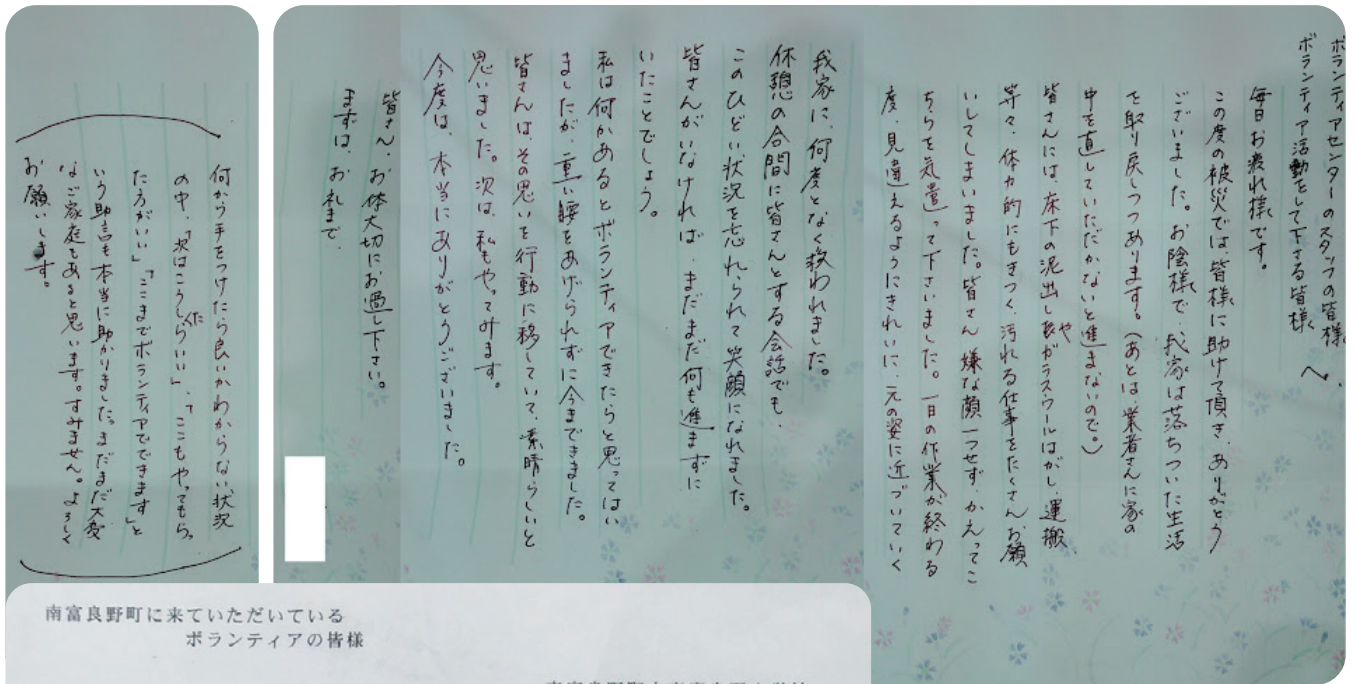 ボランティアセンターのスタッフの皆様
ボランティア活動をして下さる皆様へ
毎日お疲れ様です。
この度の被災では皆様に助けて頂き、ありがとう
ございました。お陰様で、我家は落ちついた生活
を取り戻しつつあります。(あとは、業者さんに家の
中を直していただかないと進まないので。)
皆さんには、床下の泥出しやガラスウールはがし、運搬
等々、体力的にもきつく、汚れる仕事をたくさんお願
いしてしまいました。皆さん嫌な顔一つせず、かえってこ
ちらを気遣って下さいました。一日の作業が終わる
度、見違えるようにきれいに、元の姿に近づいていく
我家に、何度となく救われました。
休憩の合間に皆さんとする会話でも、
このひどい状況を忘れられて笑顔になれました。
皆さんがいなければ、まだまだ何も進まずに
いたことでしょう。
私は何かあるとボランティアできたらと思ってはい
ましたが、重い腰をあげられずに今まできました。
皆さんは、その思いを行動に移していて、素晴らしいと
思いました。次は、私もやってみます。
今度は、本当にありがとうございました。
皆さん、お体大切にお過し下さい。
まずは、お礼まで、
何から手をつけたら良いかわからない状況
の中、「次はこうしたらいい」、「ここもやってもらっ
た方がいい」「ここまでボランティアでできます」と
いう助言も本当に助かりました。まだまだ大変
なご家庭もあると思います。すみません。よろしく
お願いします。
南富良野町に来ていただいている
ボランティアの皆様